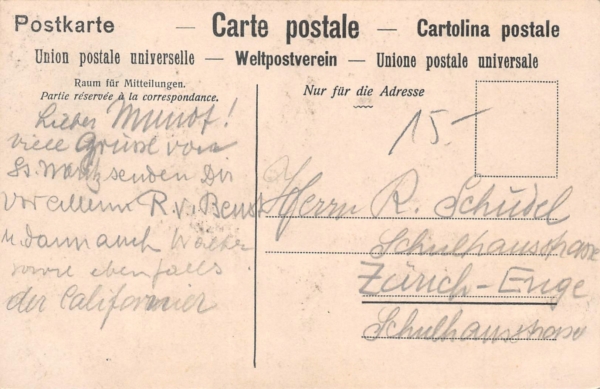 Postkarte — Carte postale — Cartolina postale
Union postale universelle — Weltpostverein — Unione postale universale
Raum für Mitteilungen.
Partie réservée à la correspondance.
Nur für die Adresse
15.-
Lieber Mundf!
viele Grüsse von
senden Dir
vor allem R. v. Beust
u. dann auch Walter
sowie ebenfalls
der Californier
Herrn R. Schüdel
Schulhausstrasse
Zürich-Enge
Schulhausstrasse